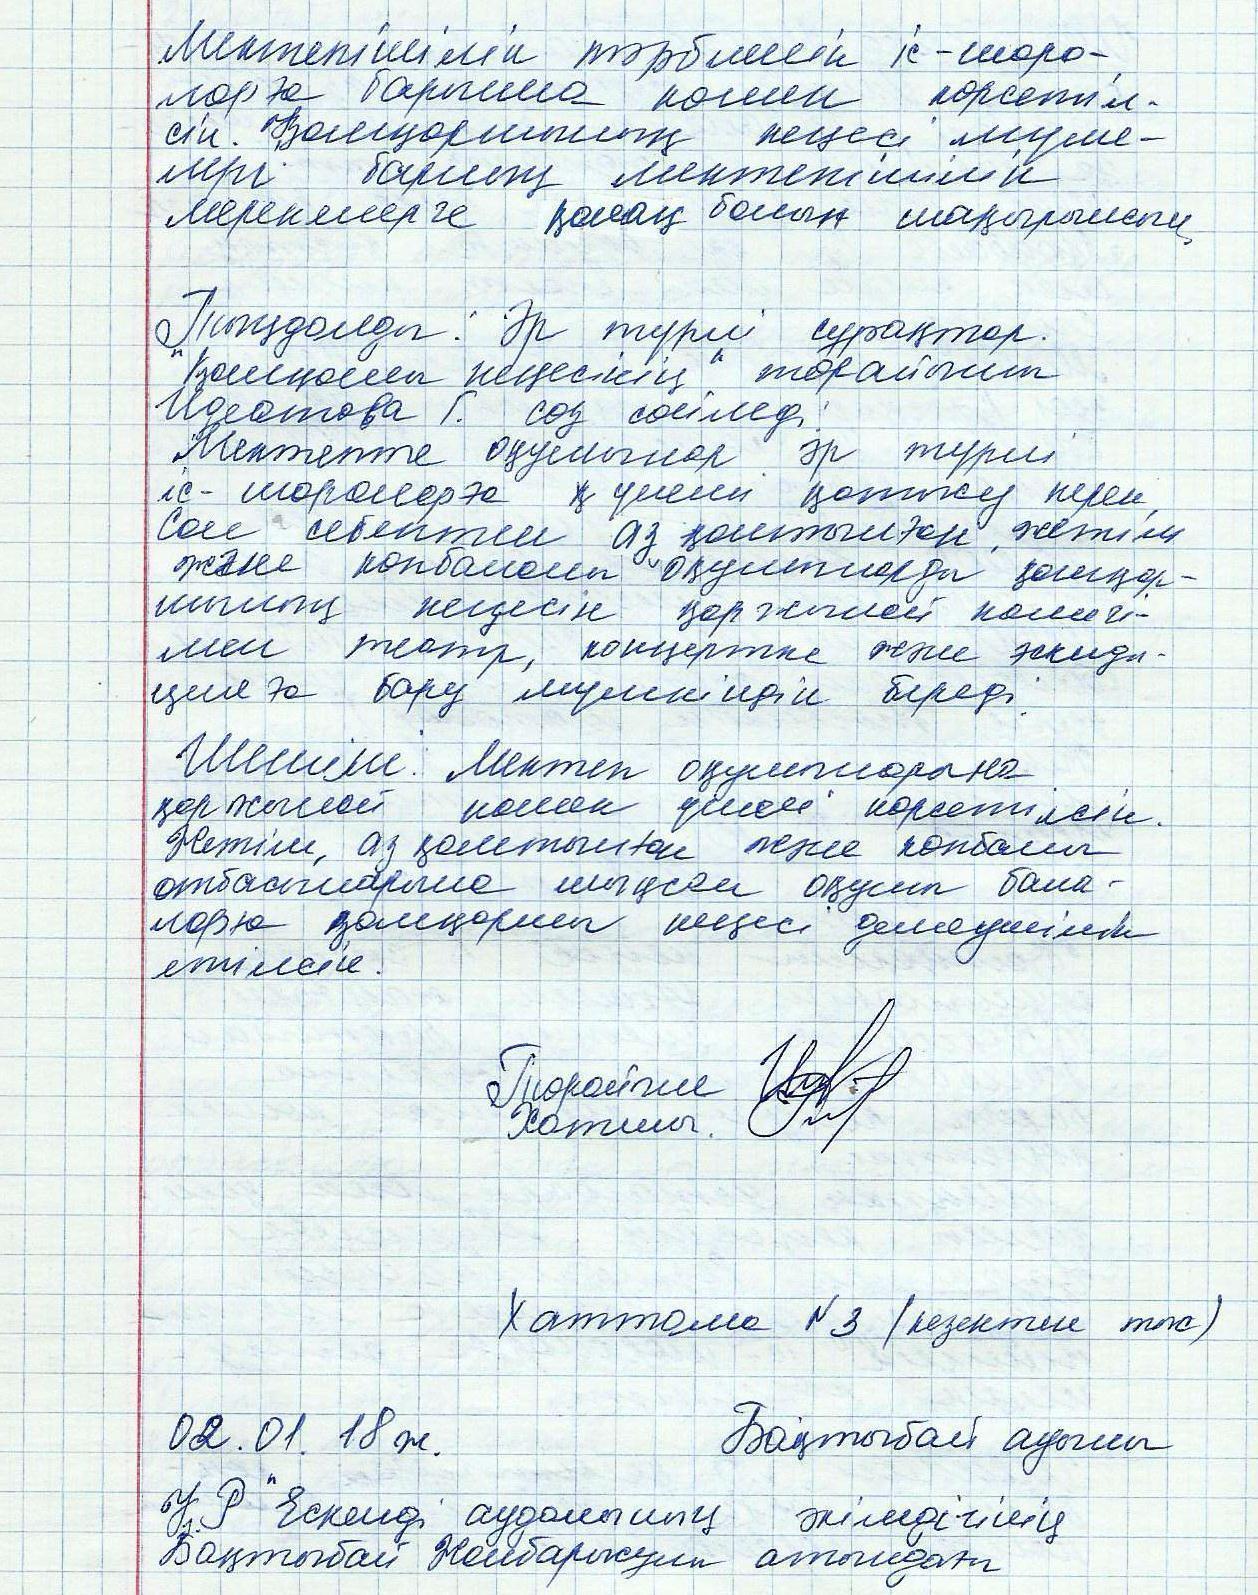 Мектепішілік тәрбиелік іс-шара-
ларға барынша көмек көрсетіл-
сін. Қамқоршылық кеңесі мүше-
лері барлық мектепішілік
мерекелерге қонақ болып шақырылсын.
Тыңдалды: Әр түрлі сұрақтар.
"Қамқоршы кеңесінің" төрайымы
Г. сөз сөйледі:
Мектепте оқушылар әр түрлі
іс-шараларға үнемі қатысу керек,
Сол себептен аз қамтылған, жетім
және көпбалалы оқушыларды қамқор-
шылық кеңесін қаржылай көмегі-
мен театр, концертке және экспеди-
цияға бару мүмкіндік береді.
Шешім: Мектеп оқушыларына
қаржылай көмек үнемі көрсетілсін.
Жетім, аз қамтылған және көпбалы
отбасыларына шыққан оқушы бала-
ларға қамқоршы кеңесі демеушілік
етілсін.
Төрайым
Хатшы.
Хаттама N 3 (кезектен тыс)
02.01.18 ж.
Бақтыбай ауылы
Қ.Р "Ескелді ауданының әкімдігінің
Бақтыбай Жолбарысұлы атындағы